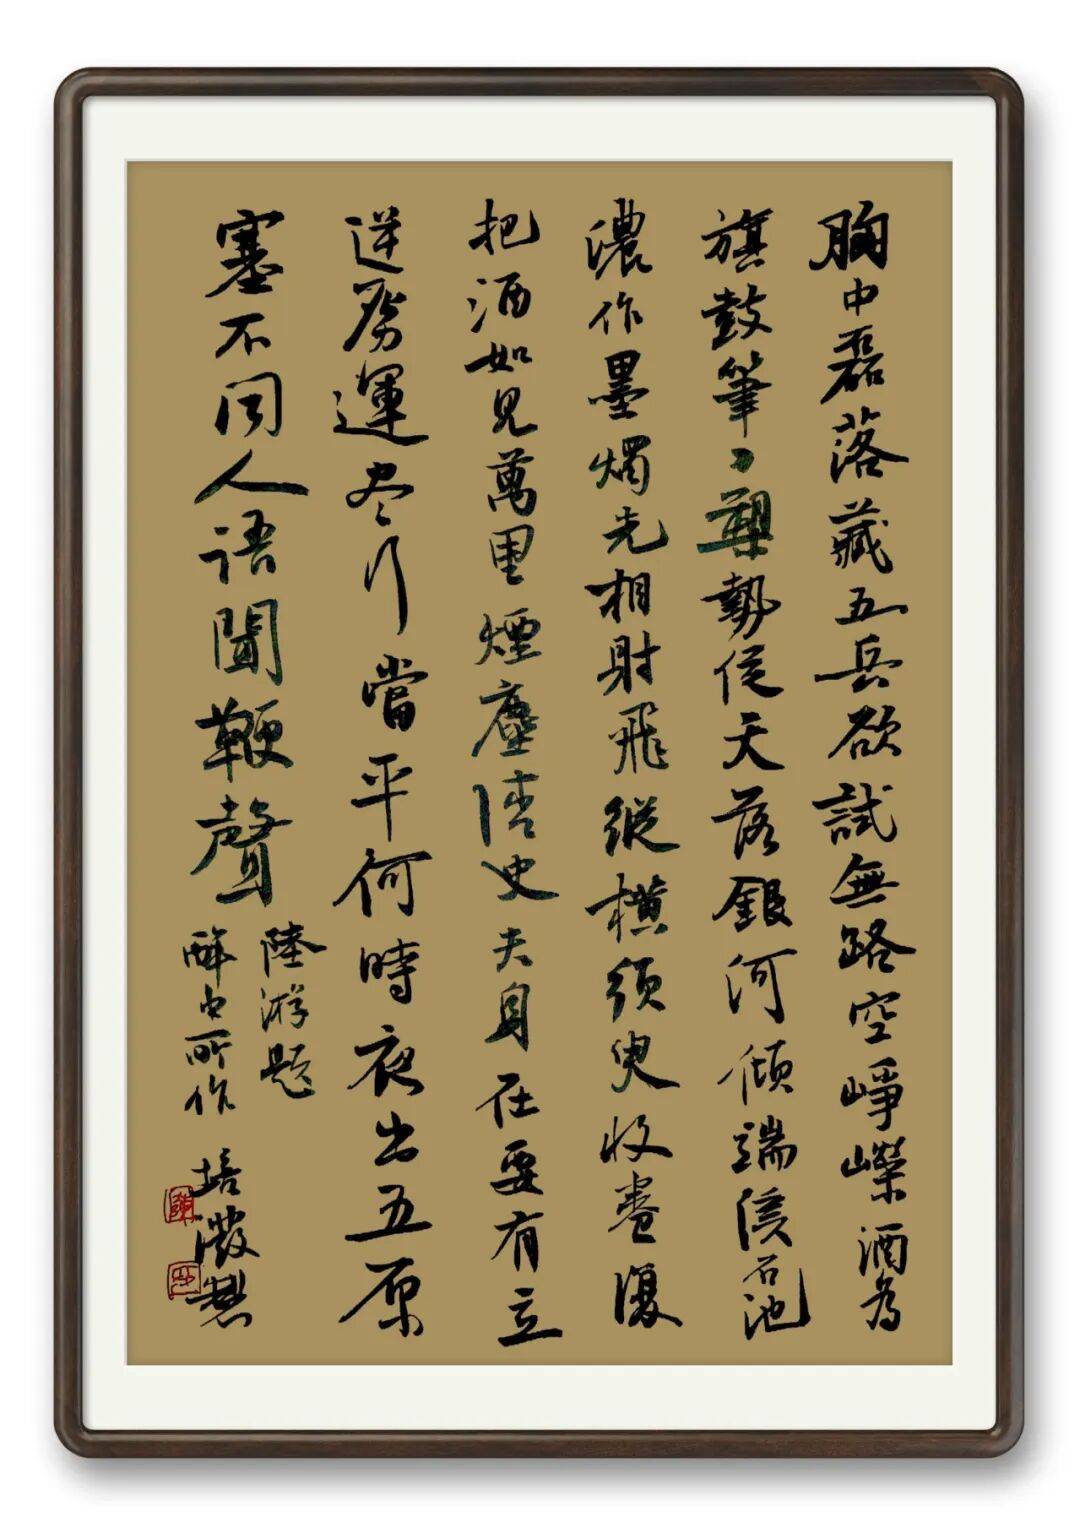 胸中磊落藏五兵欲試無路空崢嶸酒為
旗鼓筆刀槊勢從天落銀河傾端溪石池
濃作墨燭光相射飛縱橫須臾收卷復
把酒如見萬里煙塵清丈夫身在要有立
逆虜運尽行當平何時夜出五原
塞不聞人語聞鞭聲
陸游題
醉中所作
培